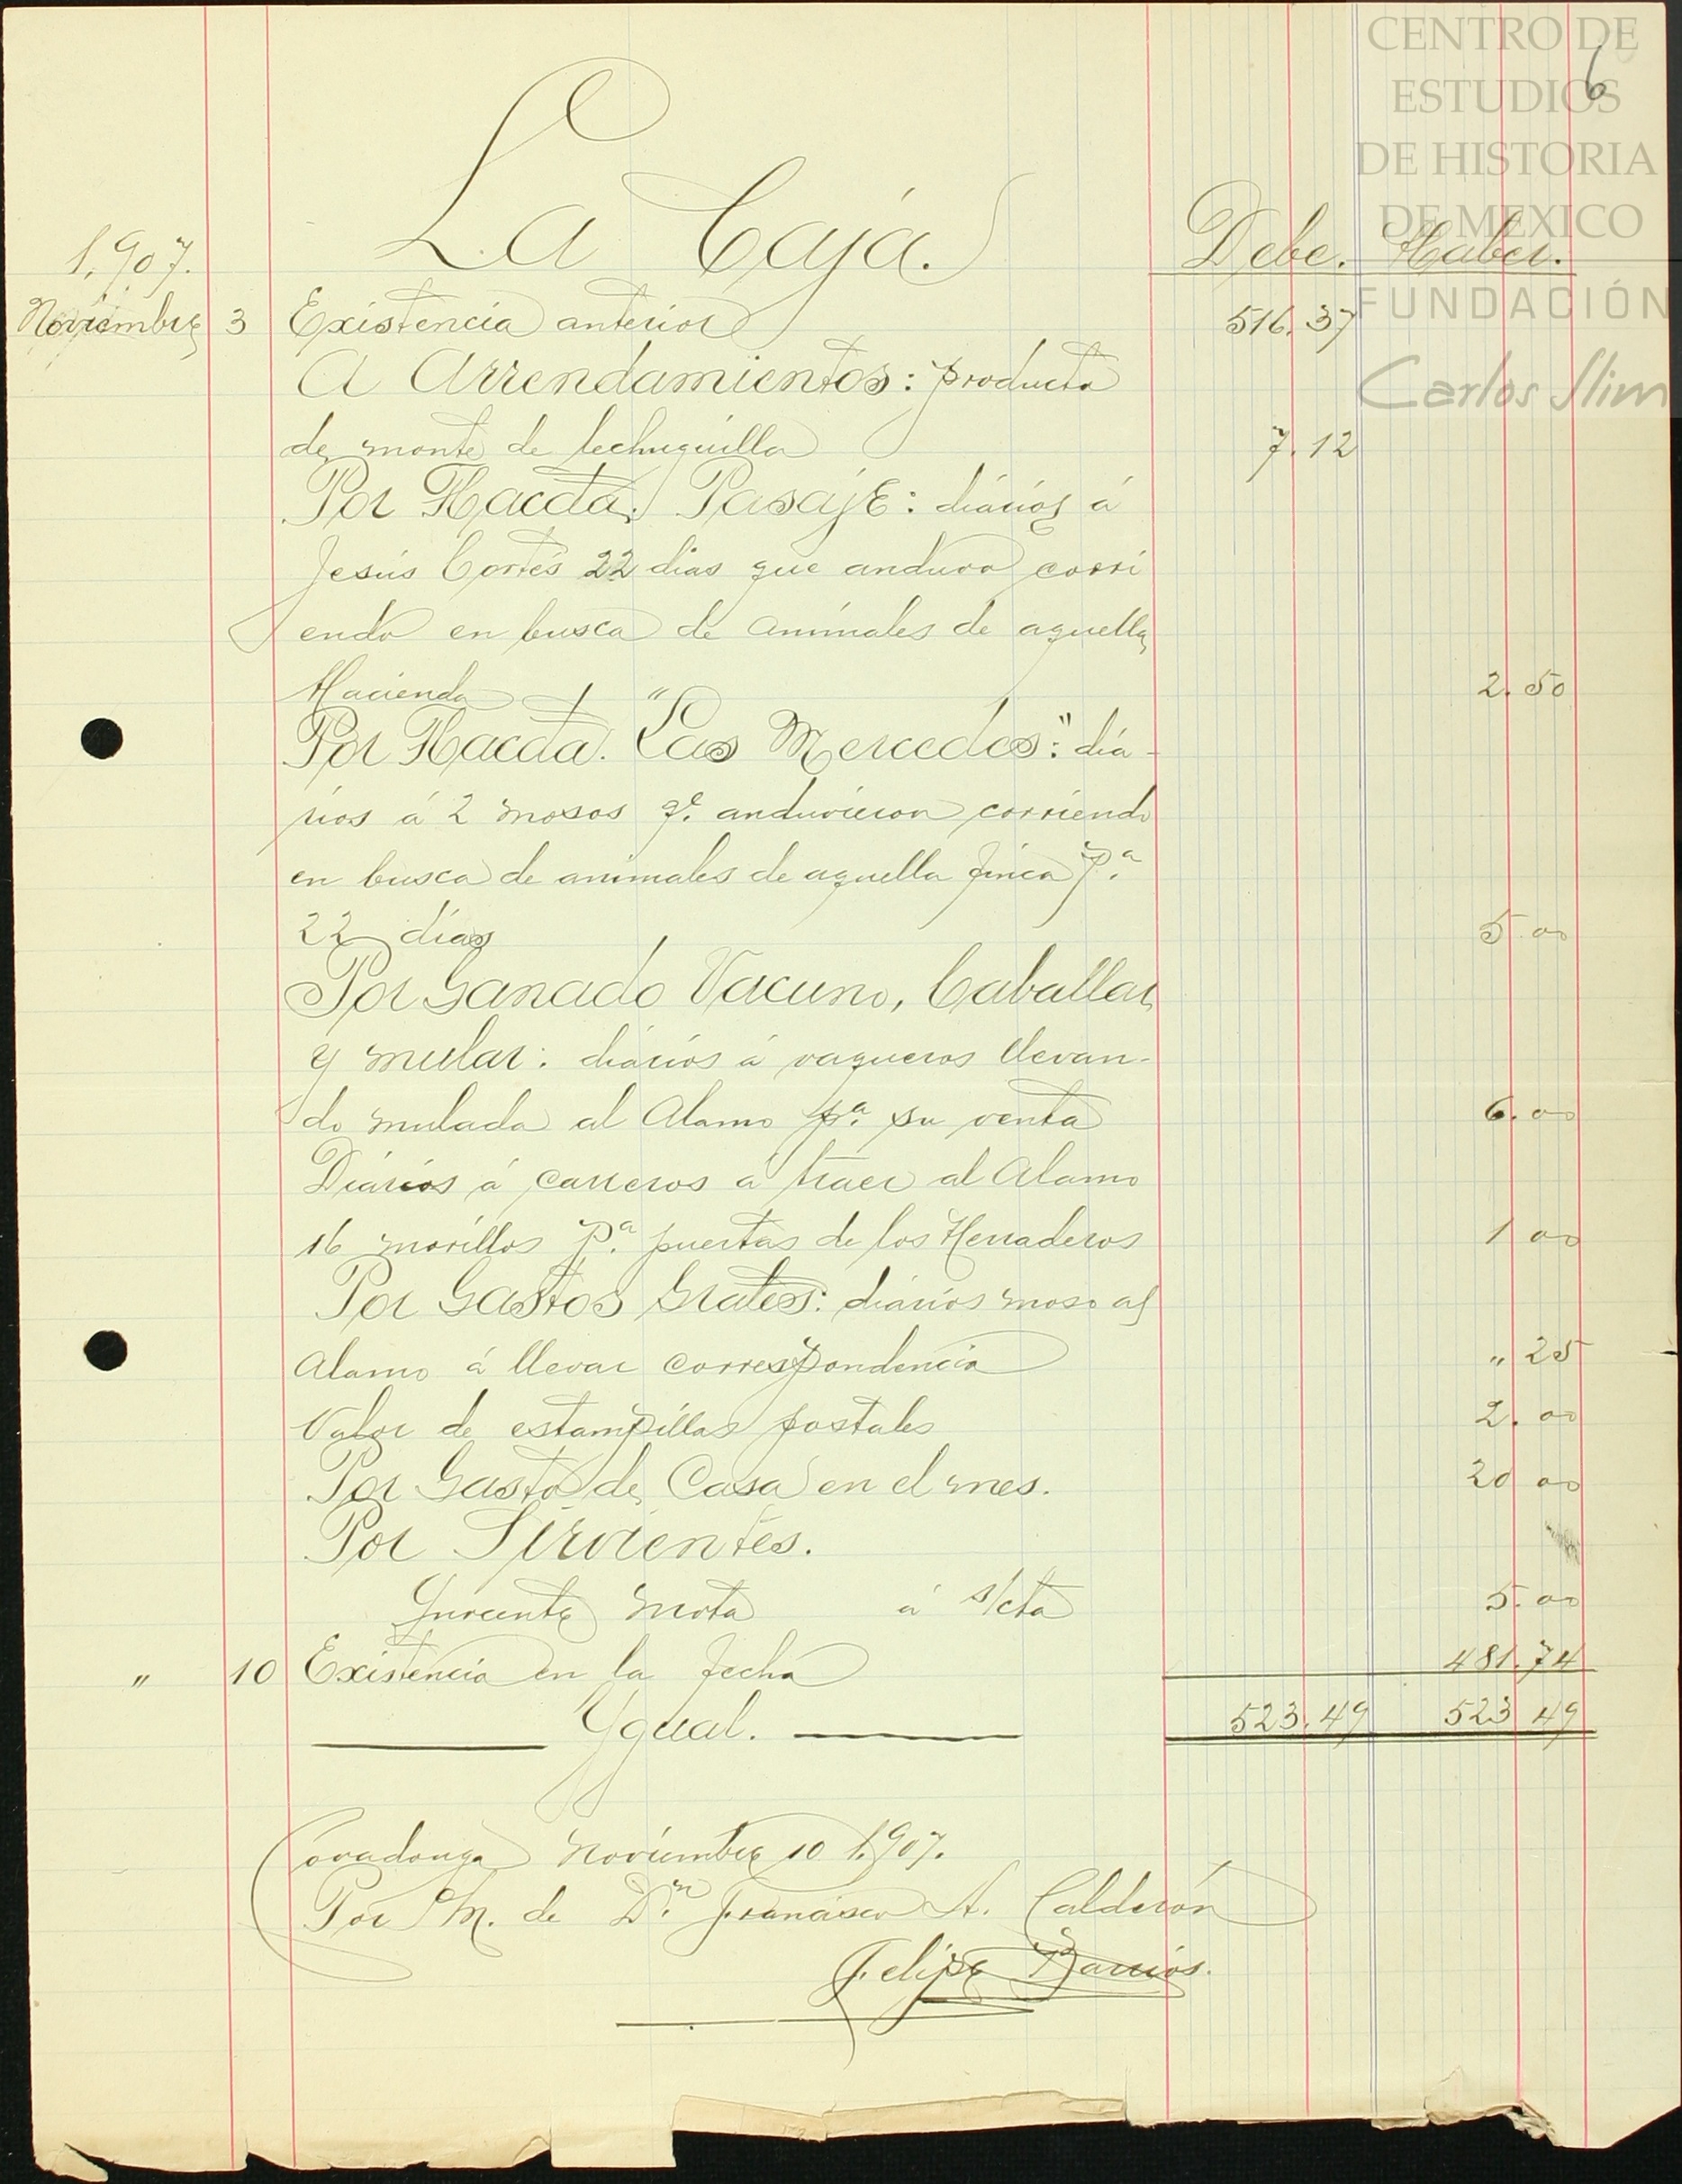 CENTRO DE
ESTUDIOS
DE HISTORIA
DE MEXICO
FUNDACIÓN
Carlos Slim
6
La Caja.
Debe. Haber.
1.907.
Noviembre 3 Existencia anterior 516.37
A Arrendamientos: producto
de monte de lechuguilla 7.12
Por Hacda. Pasaje: diarios á
Jesús Cortés 22 dias que anduvo corri
endo en busca de animales de aquella
Hacienda 2.50
Por Hacda. "Las Mercedes": dia-
rios á 2 mosos qe. anduvieron corriendo
en busca de animales de aquella finca pa.
22 dias 5.00
Por Ganado Vacuno, Caballar
y mular: diarios á vaqueros llevan-
do mulada al Alamo pa. su venta 6.00
Diarios á carreros a traer al Alamo
16 morillos pa. puertas de los Herraderos 1 00
Por Gastos Grales: diarios moso al
Alamo á llevar correspondencia " 25
Valor de estampillas postales 2.00
Por Gasto de Casa en el mes. 20 00
Por Sirvientes.
Ynocente Mota á s/cta 5.00
" 10 Existencia en la fecha 481.74
Ygual. 523.49 523 49
Covadonga Noviembre 10 1.907.
Por M. de Dn. Francisco A. Calderón
Felipe Barrios.